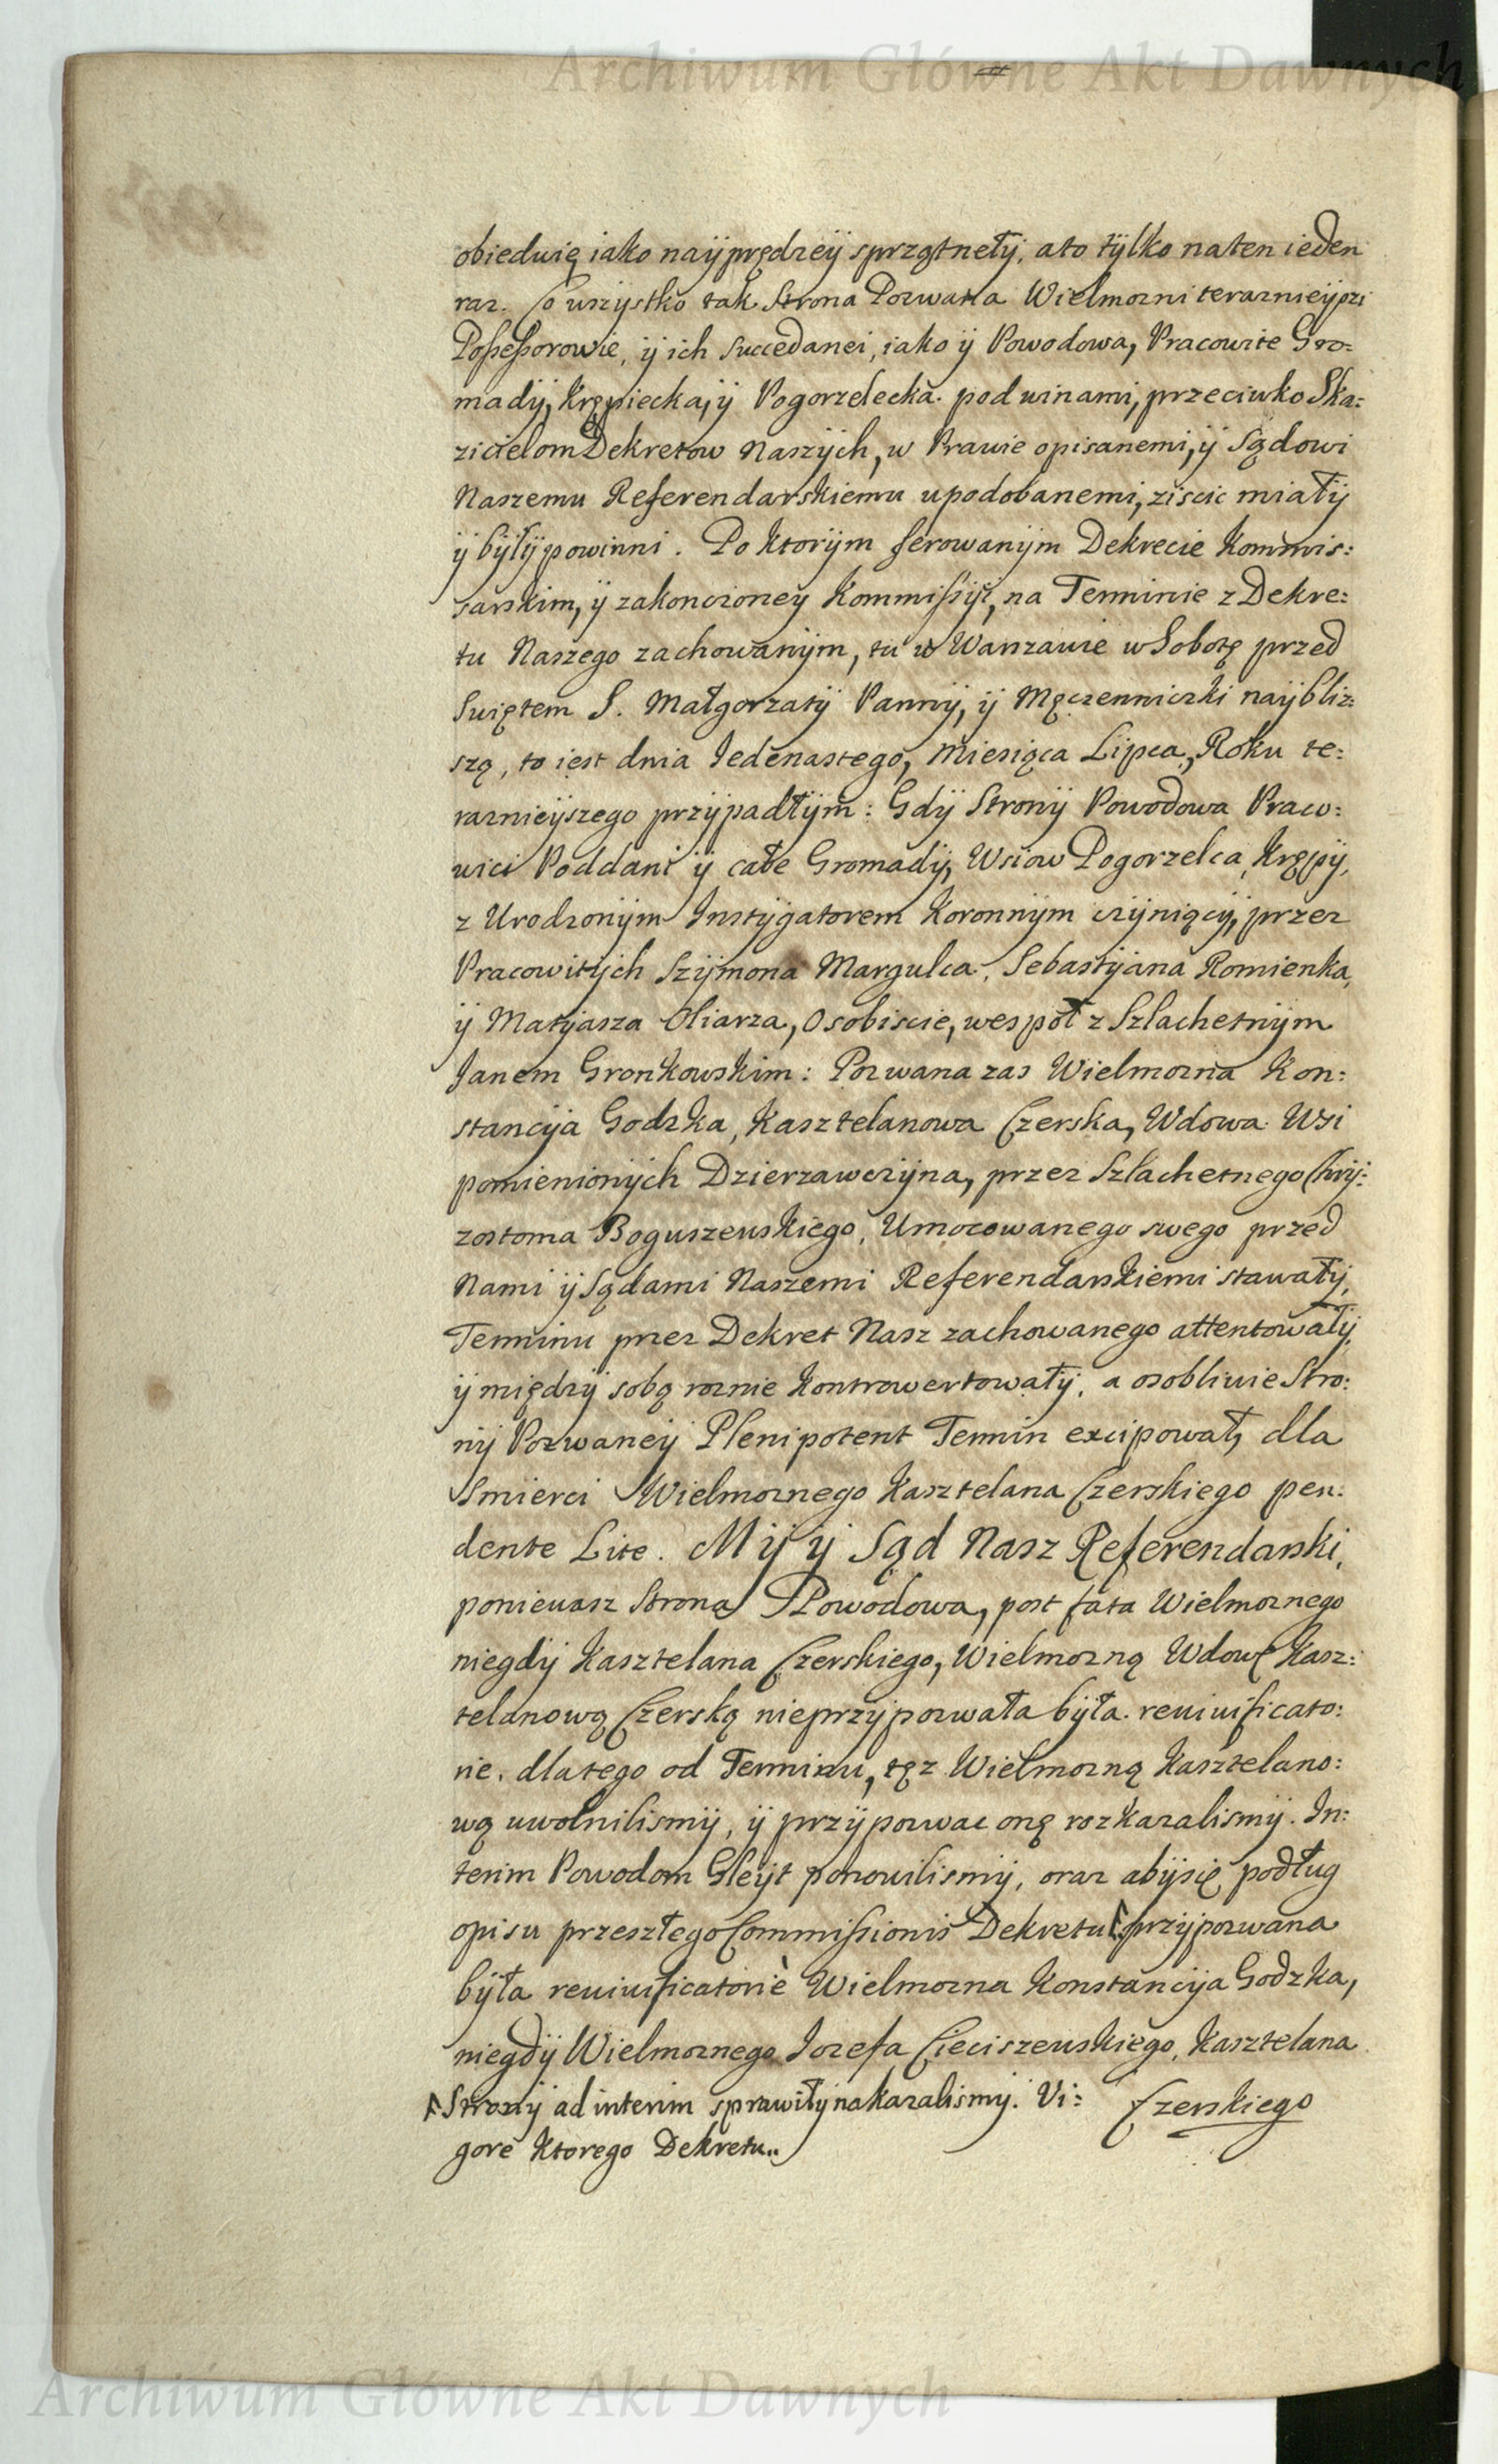 Archiwum Główne Akt Dawnych
obiedwię iako nayprędzey sprzątnęły, a to tylko na ten ieden
raz. Co wszystko tak Strona Pozwana Wielmozni terazniejszi
Possessorowie, ÿ ich Succedanei, iako ÿ Powodowa, Pracowite Gro=
madÿ, Krępiecka, ÿ Pogorzelecka. pod winami, przeciwko Ska:
zicielom Dekretow Naszÿch, w Prawie opisanemi, ÿ Sądowi
Naszemu Referendarskiemu upodobanemi, ziscic miałÿ
ÿ bÿłÿ powinni. Po ktorÿm ferowanÿm Dekrecie Kommis:
sarskim, ÿ zakonczoneÿ Kommissÿi, na Terminie z Dekre:
tu Naszego zachowanÿm, tu w Warszawie w Sobotę przed
Swiętem S. Małgorzatÿ Pannÿ, ÿ Męczenniczki naÿbliz:
szą, to iest dnia Iedenastego, Miesiąca Lipca, Roku te:
raznieÿszego przÿpadłÿm: Gdÿ Stronÿ Powodowa Praco:
wici Poddani ÿ całe Gromadÿ, Wsiow Pogorzelca, Krępÿ,
z Urodzonÿm Instÿgatorem Koronnÿm czÿniącÿ, przez
Pracowitÿch Szÿmona Margulca, Sebastÿana Romienka,
ÿ Matÿasza Oliarza, Osobiscie, wespoł z Szlachetnÿm
Ianem Gronkowskim: Pozwana zas Wielmozna Kon:
stancÿa Godzka, Kasztelanowa Czerska, Wdowa Wsi
pomienionÿch Dzierzawczÿna, przez Szlachetnego Chrÿ:
zostoma Boguszewskiego, Umocowanego swego przed
Nami ÿ Sądami Naszemi Referendarskiemi stawałÿ,
Terminu przez Dekret Nasz zachowanego attentowałÿ,
ÿ międzÿ sobą roznie kontrowertowałÿ, a osobliwie Stro:
nÿ Pozwaneÿ Plenipotent Termin excipował, dla
Smierci Wielmoznego Kasztelana Czerskiego pen:
dente Lite. Mÿ ÿ Sąd Nasz Referendarski,
poniewasz Strona Powodowa, post fata Wielmoznego
niegdÿ Kasztelana Czerskiego, Wielmozną Wdowę Kasz:
telanową Czerską nieprzÿpozwała bÿła reviuificato:
rie, dlatego od Terminu, tęz Wielmozną Kasztelano:
wą uwolnilismÿ, ÿ przÿpozwac onę rozkazalismÿ. In:
terim Powodom Gleÿt ponowilismÿ, oraz abÿ się podług
opisu przeszłego Commissionis Dekretu przÿpozwana
bÿła reviuificatoriè Wielmozna Konstancÿa Godzka,
niegdÿ Wielmoznego Iozefa Cieciszewskiego, Kasztelana
Stronÿ ad interim sprawiłÿ nakazalismÿ. Vi: Czerskiego
gore ktorego Dekretu..
Archiwum Główne Akt Dawnych